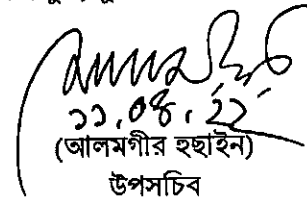 ১১.০৪.২২
(আলমগীর হুছাইন)
উপসচিব